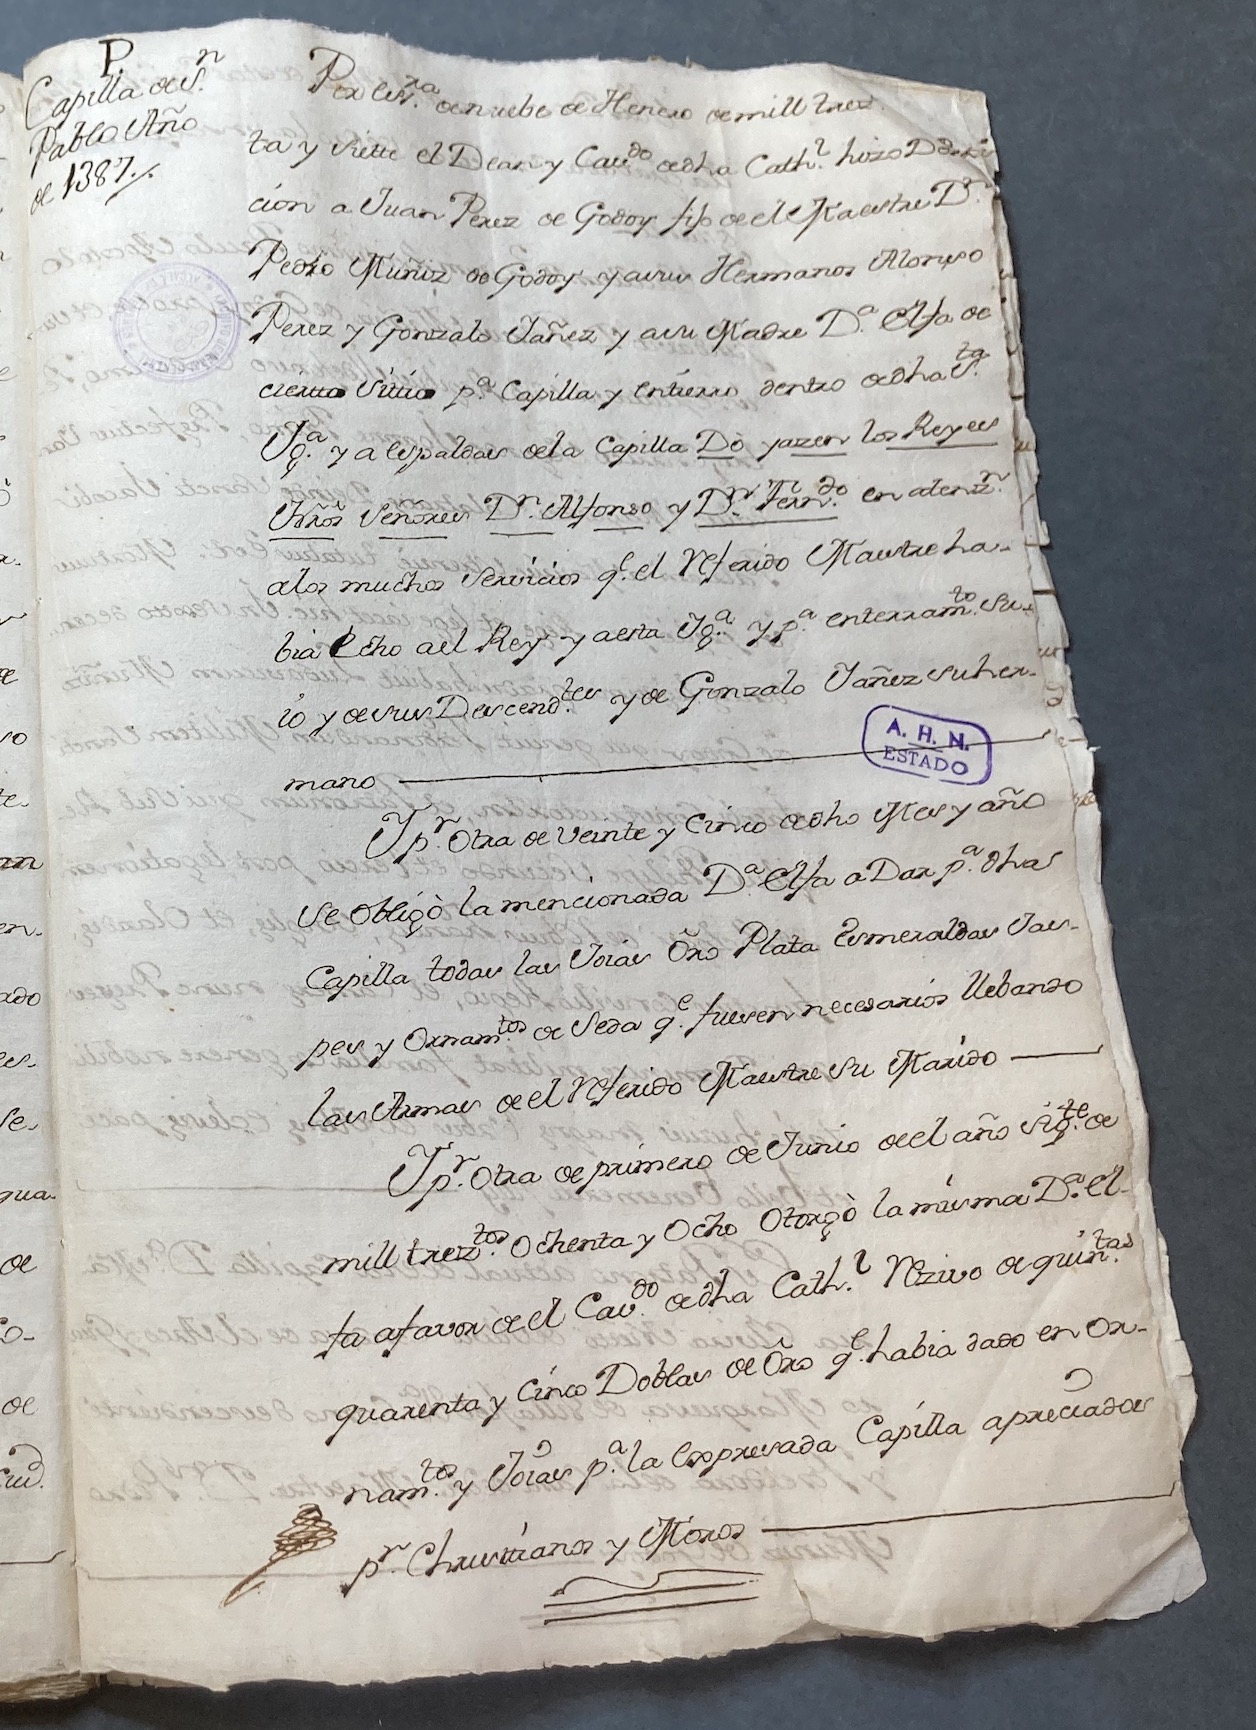 P.
Capilla de Sn.
Pablo Año
de 1387./.
Por Esra. de nuebe de Henero de mill trez.
ta y siete el Dean y Cavdo. de dha Cathl. hizo Dona
ción a Juan Perez de Godoy fijo de el Maestre Dn.
Pedro Muñiz de Godoy y a sus Hermanos Alonso
Perez y Gonzalo Yañez y a su Madre Da. Elfa de
cierto sitio pa. Capilla y entierro dentro de dha Sta.
Yga. y a espaldas de la Capilla Dó yazen los Reyes
Nros Señores Dn. Alfonso y Dn. Ferndo. en atenzn.
a los muchos servicios qe. el Referido Maestre ha-
bia Echo a el Rey y a esta Yga. y pa. enterramto. su-
io y de sus Descendtes. y de Gonzalo Yañez su her-
mano
Y pr. Otra de veinte y Cinco de dho Mes y año
se obligò la mencionada Da. Elfa a Dar pa. dha
Capilla todas las Joias Oro Plata Esmeraldas Jas-
pes y Ornamtos. de Seda qe. fuesen necesarios llebando
las Armas de el Referido Maestre su Marido
Y pr. Otra de primero de Junio de el año sigte. de
mill treztos. ochenta y Ocho Otorgò la misma Da. El-
fa a favor de el Cavdo. de dha Cathl. Rezivo de quintas
quarenta y Cinco Doblas de Oro qe. habia dado en Or-
namtos. y Joias pa. la Expresada Capilla apreciadas
pr. Christianos y Moros
A. H. N.
ESTADO